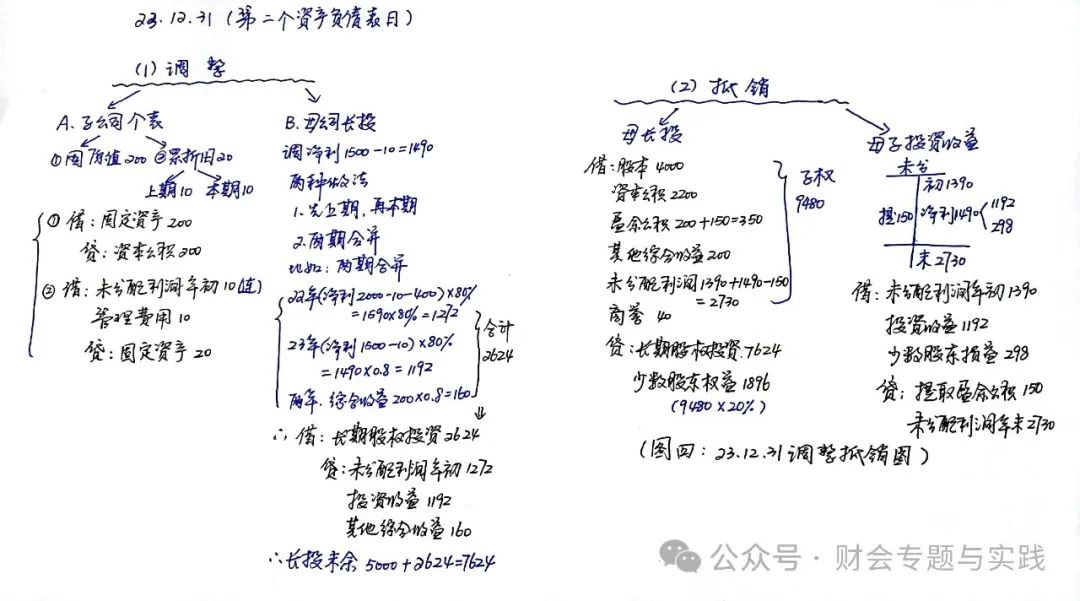 23.12.31(第二个资产负债表日)
(1)调整
A.子公司个表
①固原值200 ②累折旧20
上期10 本期10
① 借:固定资产200
贷:资本公积200
② 借:未分配利润年初10(连)
管理费用10
贷:固定资产20
B.母公司长投
调净利1500-10=1490
两种做法
1.先上期,再本期
2.两期合并
比如:两期合并
22年(净利2000-10-400)×80%
=1590×80%=1272
23年(净利1500-10)×80%
=1490×0.8=1192
两年.综合收益200×0.8=160
合计
2624
∴ 借:长期股权投资2624
贷:未分配利润年初1272
投资收益1192
其他综合收益160
∴长投末余 5000+2624=7624
(2)抵销
母长投
借:股本4000
资本公积2200
盈余公积200+150=350
其他综合收益200
未分配利润1390+1490-150
=2730
商誉 40
子权
9480
贷:长期股权投资7624
少数股东权益1896
(9480×20%)
母子投资收益
未分
初1390
提150 净利1490
1192
298
末2730
借:未分配利润年初1390
投资收益1192
少数股东损益298
贷:提取盈余公积150
未分配利润年末2730
(图四:23.12.31调整抵销图)
公众号·财会专题与实践